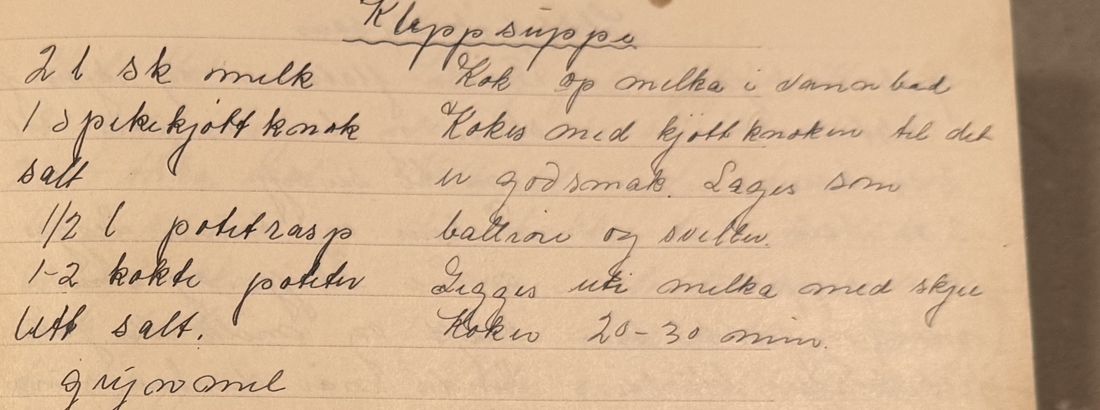 Kleppsuppe
2 l sk melk
1 spekekjøtt knok
salt
1/2 l potetrasp
1-2 kokte poteter
litt salt.
grynmel
Kok op melka i vannbad
Kokes med kjøttknoken til det
er godsmak. Lages som
ballrøre og sveller.
Legges uti melka med skje
Koker 20-30 min.